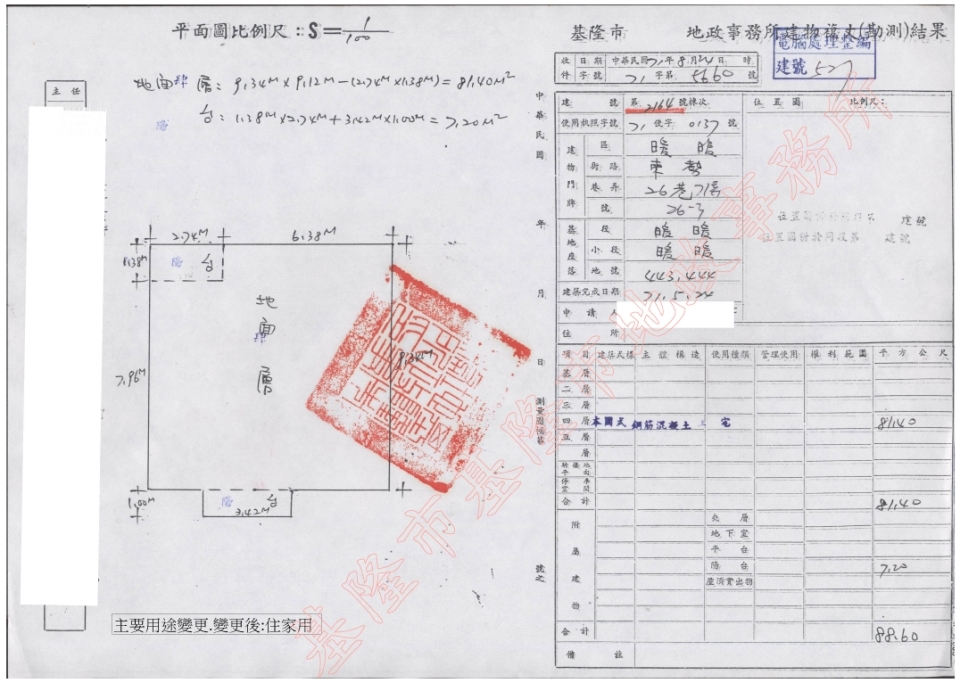 平面圖比例尺：S=1/100
基隆市 地政事務所建物複丈(勘測)結果
電腦處理整編
建號 527
收件 日期 中華民國71年8月24日 時
字號 71字第5660號
主任
地面肆層：9.34M×9.12M-(2.74M×1.38M)=81.40M²
陽台：1.38M×2.74M+3.42M×1.00M=7.20M²
中華民國 年 月 日 測量 號之
建號 第2164號棟次
位置圖 比例尺：
使用執照字號 71使字0137號
建物門牌
區 暖暖
街路 東勢
巷弄 26巷
號 26-3
基地座落
段 暖暖
小段 暖暖
地號 443,444
建築完成日期 71.5.24
申請人
住所
建號
建號
項目 建築式樣 主體構造 使用種類 管理使用 權利範圍 平方公尺
基層
二層
三層
四層 本國式 鋼筋混凝土 宅 81.40
五層
層
合計 81.40
附屬建物
夾層
地下室
平台
陽台 7.20
屋頂突出物
合計 88.60
備註
2.74M 6.38M
1.38M 陽台
地面肆層
7.96M
9.34M
1.00M 陽台
3.42M
主要用途變更.變更後:住家用
基隆市基隆市地政事務所